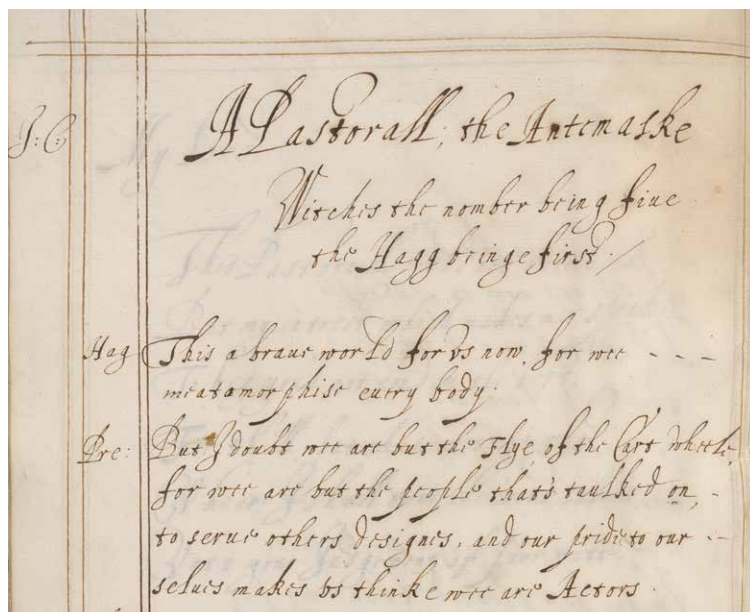 J: C:
A Pastorall; the Antemaske
Witches the nomber being fiue
the Hagg beinge first ./
Hag This a braue world for vs now, for wee - - -
meatamorphise euery body.
Pre: But I doubt wee are but the Flye, of the Cart wheele,
for wee are but the people that's taulked on, -
to serue others designes, and our pride to our - -
selues makes vs thinke wee are Actors.